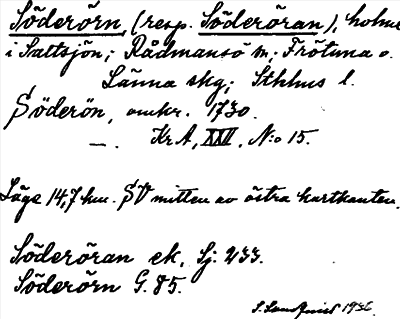 Söderörn, (resp. Söderöran), holme
i Saltsjön; Rådmansö sn; Frötuna o.
Länna skg; Sthlms l.
Söderön, omkr. 1730.
—. KrA, XXV, N:o 15.
Läge 14,7 km. SV mitten av östra kartkanten.
Söderöran ek. Sj. 233.
Söderörn G. 85.
S. Landquist 1936.